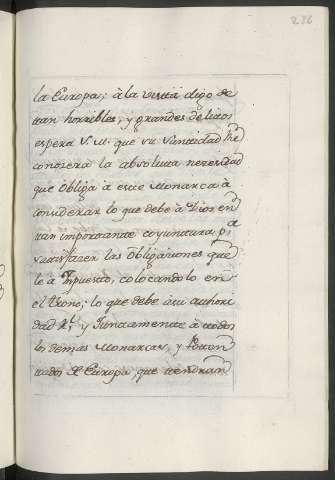 236
la Europa; à la vista digo de
tan horribles, y grandes delitos
espera S. M. que su Santidad re
conocerà la absoluta necesidad
que obliga à este Monarca à
considerar lo que debe à Dios en
tan importante coyuntura, pa
satisfazer las Obligaciones que
le à Impuesto, colocandolo en
el trono; lo que debe à su authori
dad Rl. y Juntamente à todos
los demas Monarcas, y Poten
tados de Europa, que tendran